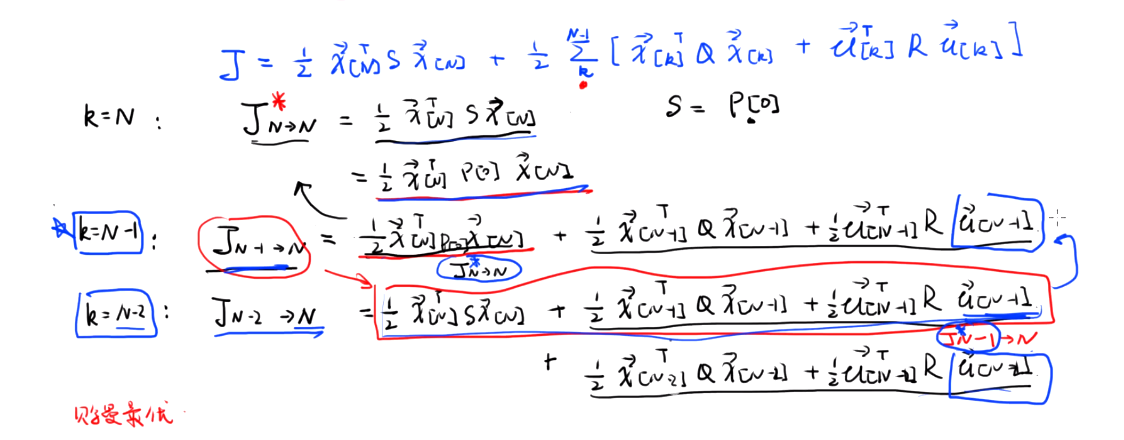 J = 1/2 x⃗ᵀ[N] S x⃗[N] + 1/2 Σ_k^{N-1} [ x⃗ᵀ[k] Q x⃗[k] + u⃗ᵀ[k] R u⃗[k] ]
k=N : J*_{N→N} = 1/2 x⃗ᵀ[N] S x⃗[N] S = P[0]
= 1/2 x⃗ᵀ[N] P[0] x⃗[N]
k=N-1 : J_{N-1→N} = 1/2 x⃗ᵀ[N] P[0] x⃗[N] + 1/2 x⃗ᵀ[N-1] Q x⃗[N-1] + 1/2 u⃗ᵀ[N-1] R u⃗[N-1]
J*_{N→N}
k=N-2 : J_{N-2→N} = 1/2 x⃗ᵀ[N] S x⃗[N] + 1/2 x⃗ᵀ[N-1] Q x⃗[N-1] + 1/2 u⃗ᵀ[N-1] R u⃗[N-1]
J*_{N-1→N}
+ 1/2 x⃗ᵀ[N-2] Q x⃗[N-2] + 1/2 u⃗ᵀ[N-2] R u⃗[N-2]
贝尔曼最优